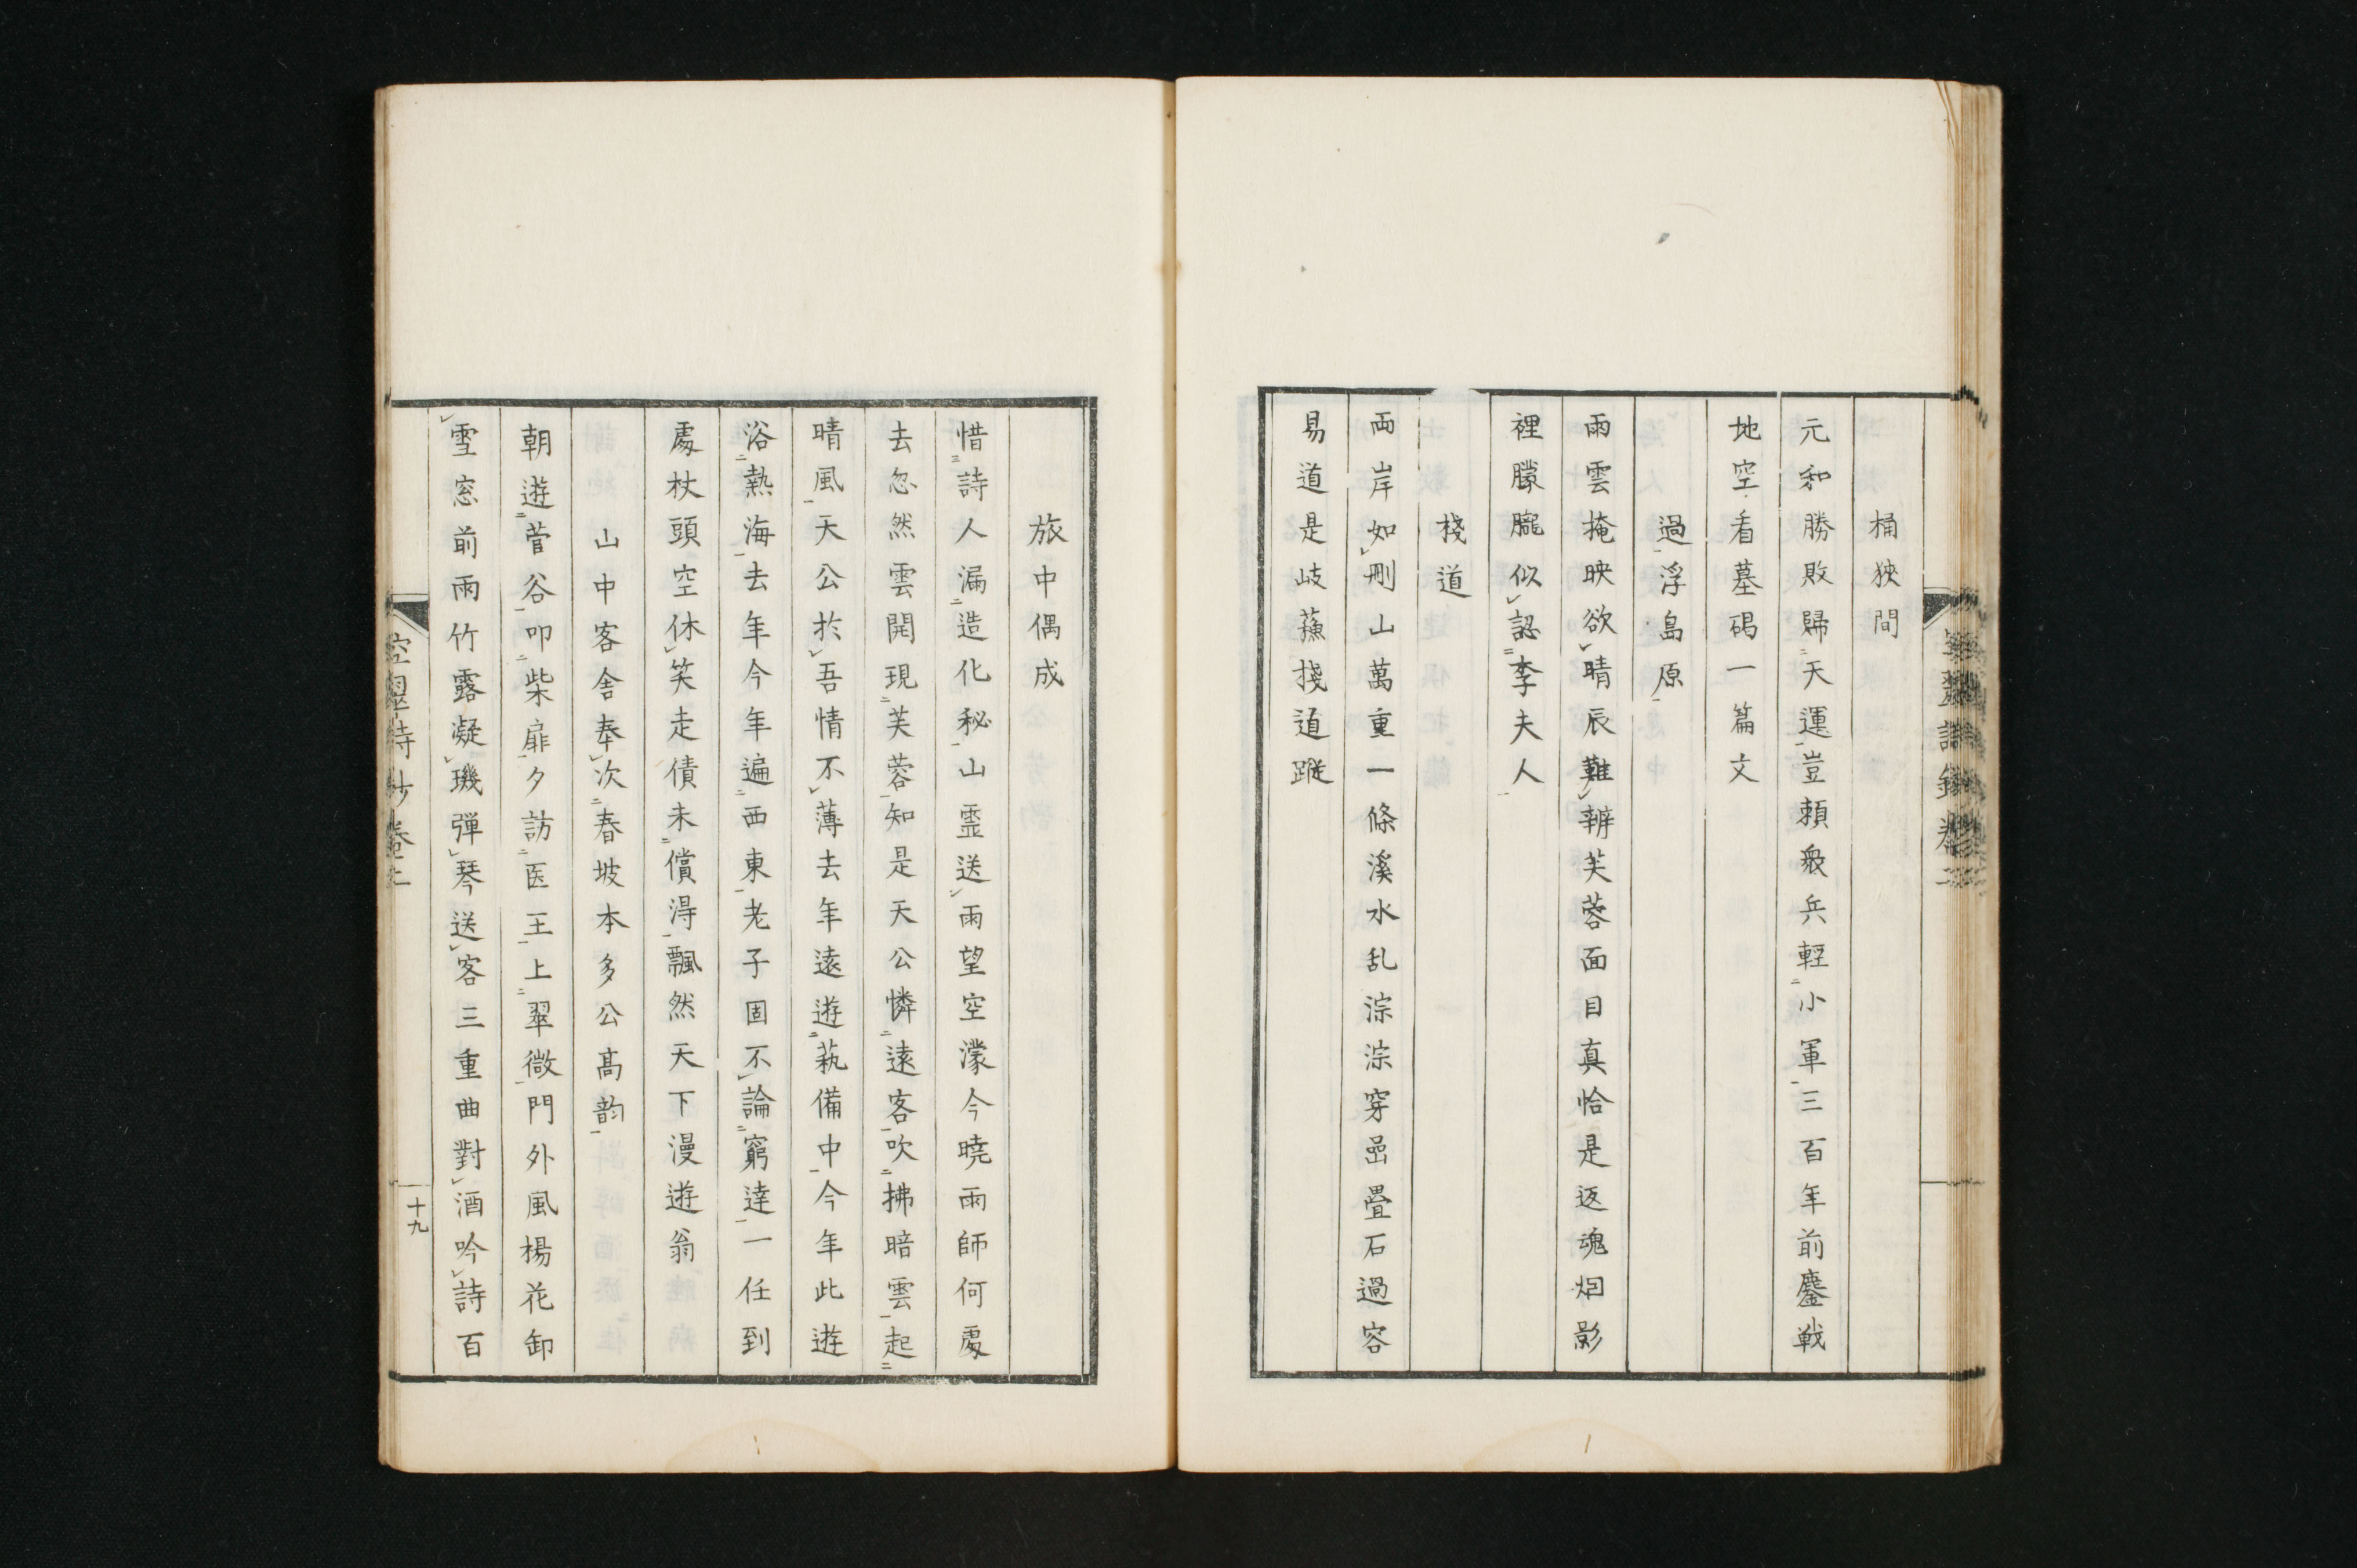 桶狹間
元和勝敗歸天運豈頼衆兵輕小軍三百年前鏖戦
地空看墓碣一篇文
過浮島原
雨雲掩映欲晴辰難辨芙蓉面目真恰是返魂烟影
裡朦朧似認李夫人
棧道
両岸如刪山萬重一條溪水乱淙淙穿嵒畳石過容
易道是岐蘓棧道蹤
旅中偶成
惜詩人漏造化秘山霊送雨望空濛今暁雨師何處
去忽然雲開現芙蓉知是天公憐遠客吹拂暗雲起
晴風天公於吾情不薄去年遠遊蓺備中今年此遊
浴熱海去年今年遍西東老子固不論窮達一任到
處杖頭空休笑走債未償得飄然天下漫遊翁
山中客舎奉次春坡本多公髙韵
朝遊菅谷叩柴扉夕訪医王上翠微門外風楊花卸
雪窓前雨竹露凝璣弾琴送客三重曲對酒吟詩百
十九